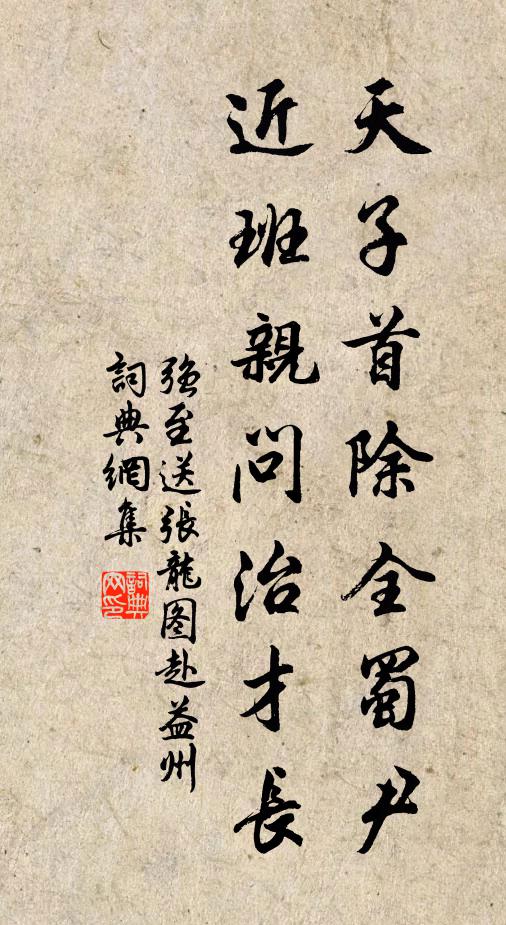 天子首除全蜀尹
近班親問治才長
強至送張龍图赴益州
詞典網集
詞典网印